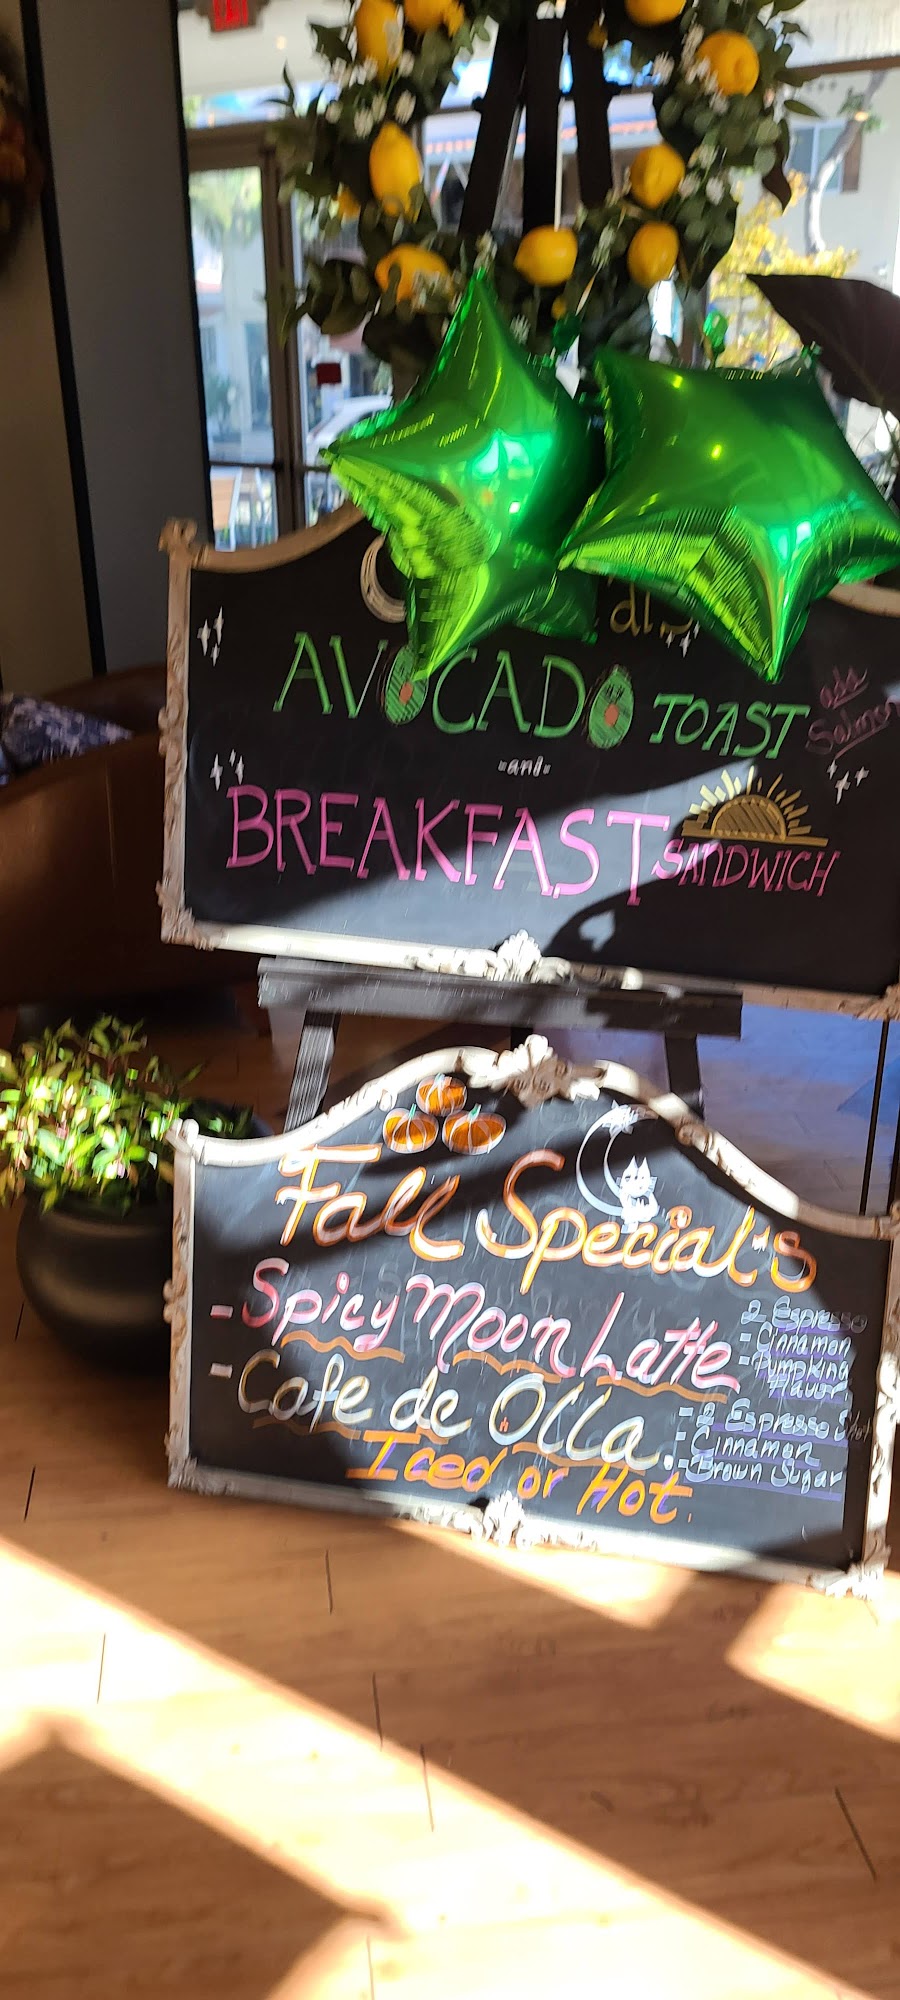 AVOCADO TOAST
add
Salmon
-and-
BREAKFAST SANDWICH
Fall Special's
- Spicy Moon Latte
- 2 Espresso
- Cinnamon
- Pumpkin
Flavor
- Cafe de Olla.
- 2 Espresso Shot
- Cinnamon
- Brown Sugar
Iced or Hot.